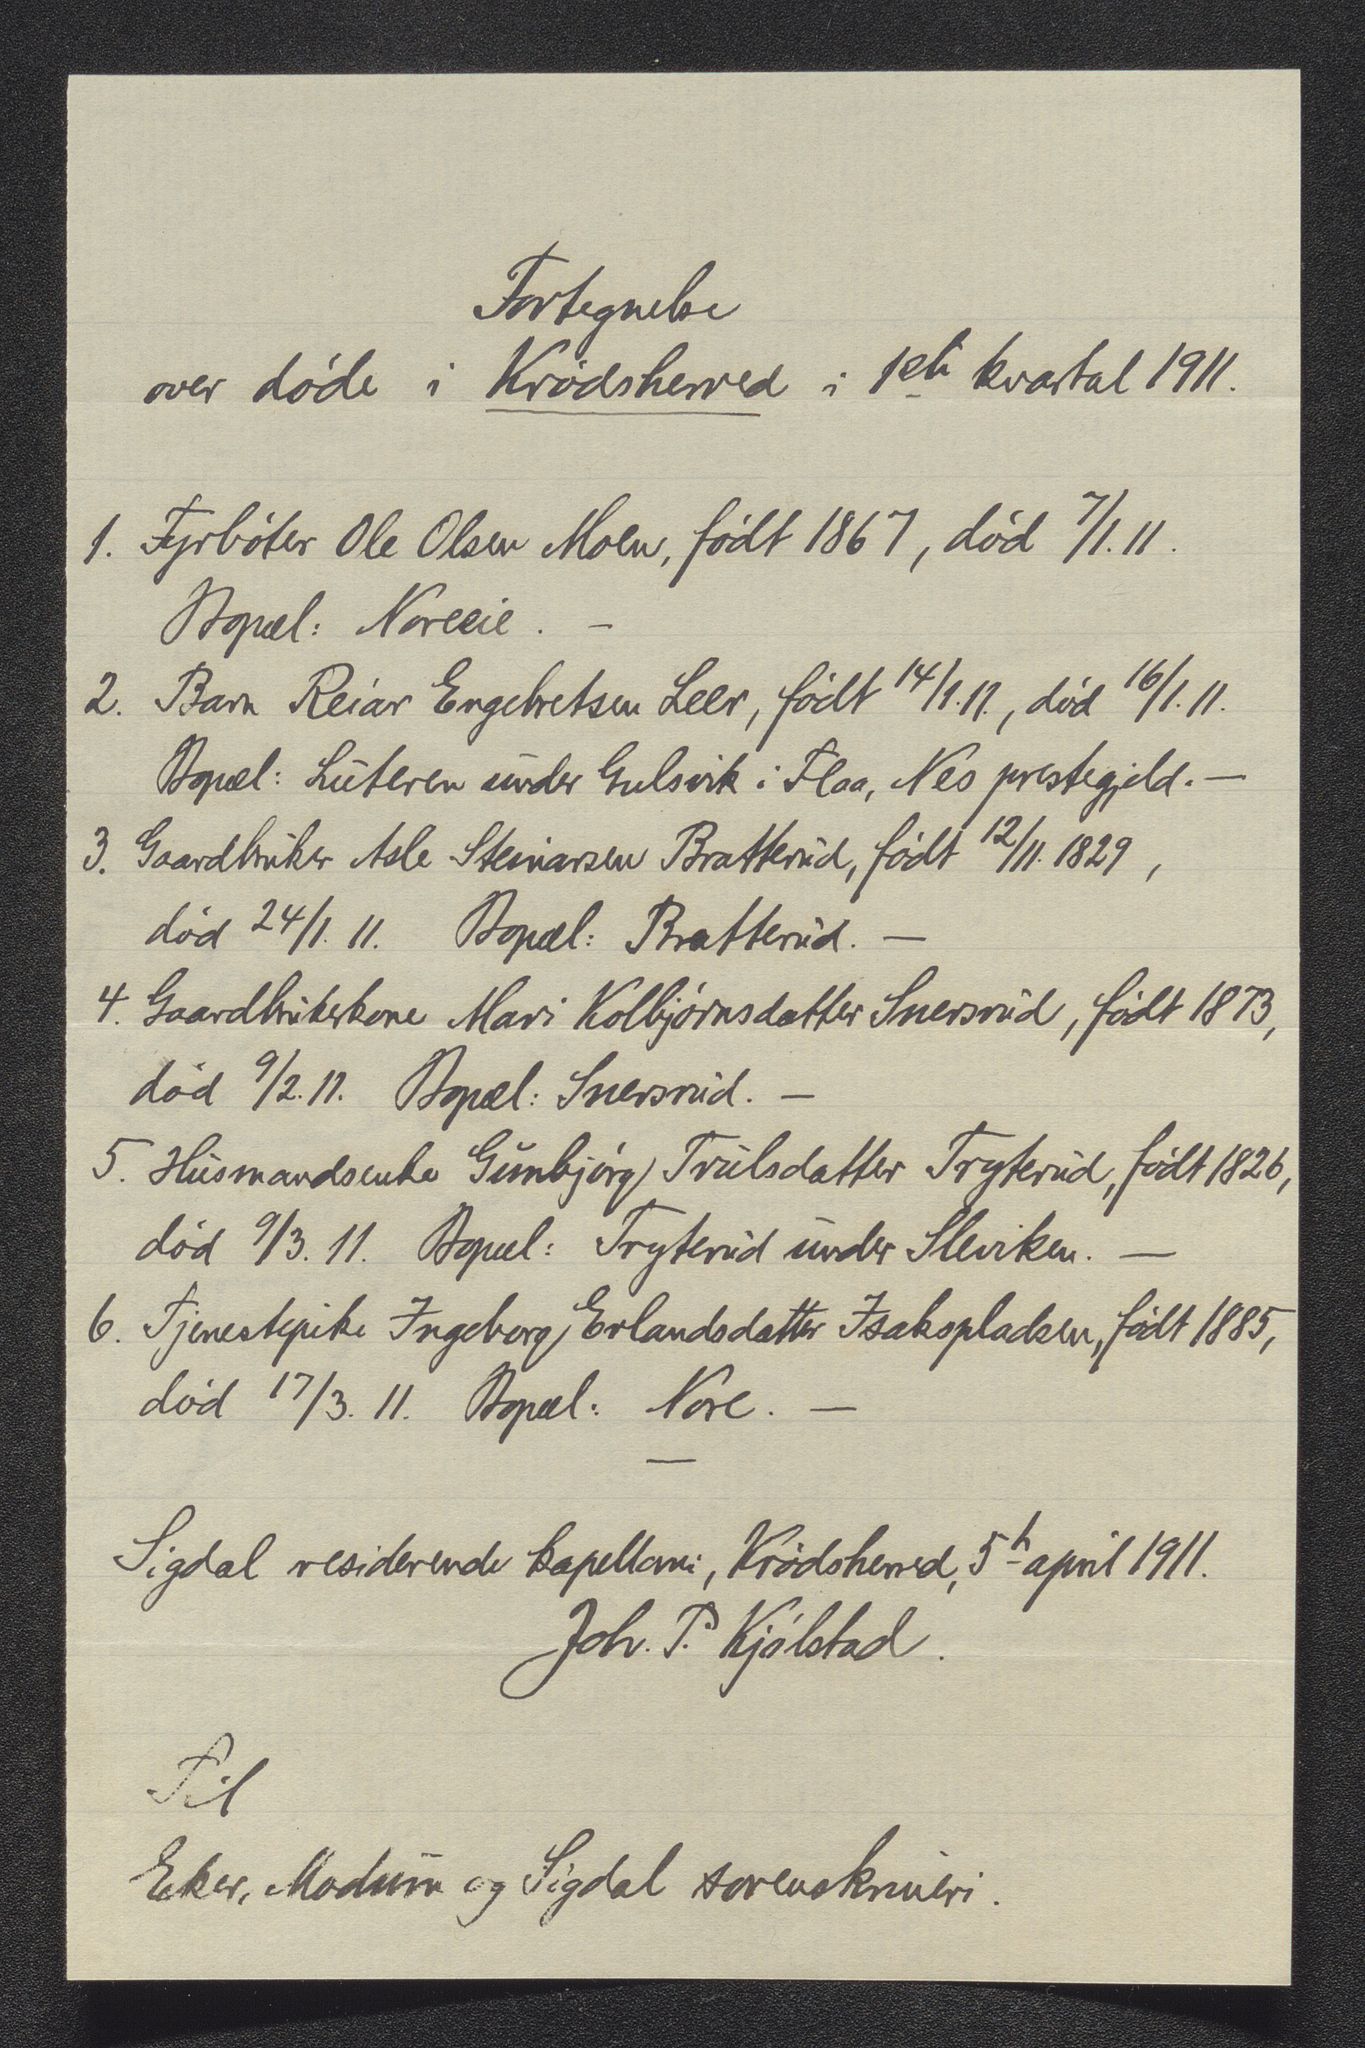 Fortegnelse
over døde i Krødsherred i 1ste kvartal 1911.
1. Fyrbøter Ole Olsen Moen, født 1867, død 7/1. 11.
Bopæl: Noreeie. –
2. Barn Reiar Engebretsen Leer, født 14/1. 11., død 16/1. 11.
Bopæl: Luteren under Gulsvik i Flaa, Nes prestegjeld. –
3. Gaardbruker Asle Steinarsen Bratterud, født 12/11. 1829,
død 24/1. 11. Bopæl: Bratterud. –
4. Gaardbrukerkone Mari Kolbjørnsdatter Snersrud, født 1873,
død 9/2. 11. Bopæl: Snersrud. –
5. Husmandsenke Gunbjørg Trulsdatter Tryterud, født 1826,
død 9/3. 11. Bopæl: Tryterud under Sleviken. –
6. Tjenestepike Ingeborg Erlandsdatter Isakspladsen, født 1885,
død 17/3. 11. Bopæl: Nore. –
Sigdal residerende kapellani, Krødsherred, 5te april 1911.
Joh. P. Kjølstad.
Til
Eker, Modum og Sigdal sorenskriveri.